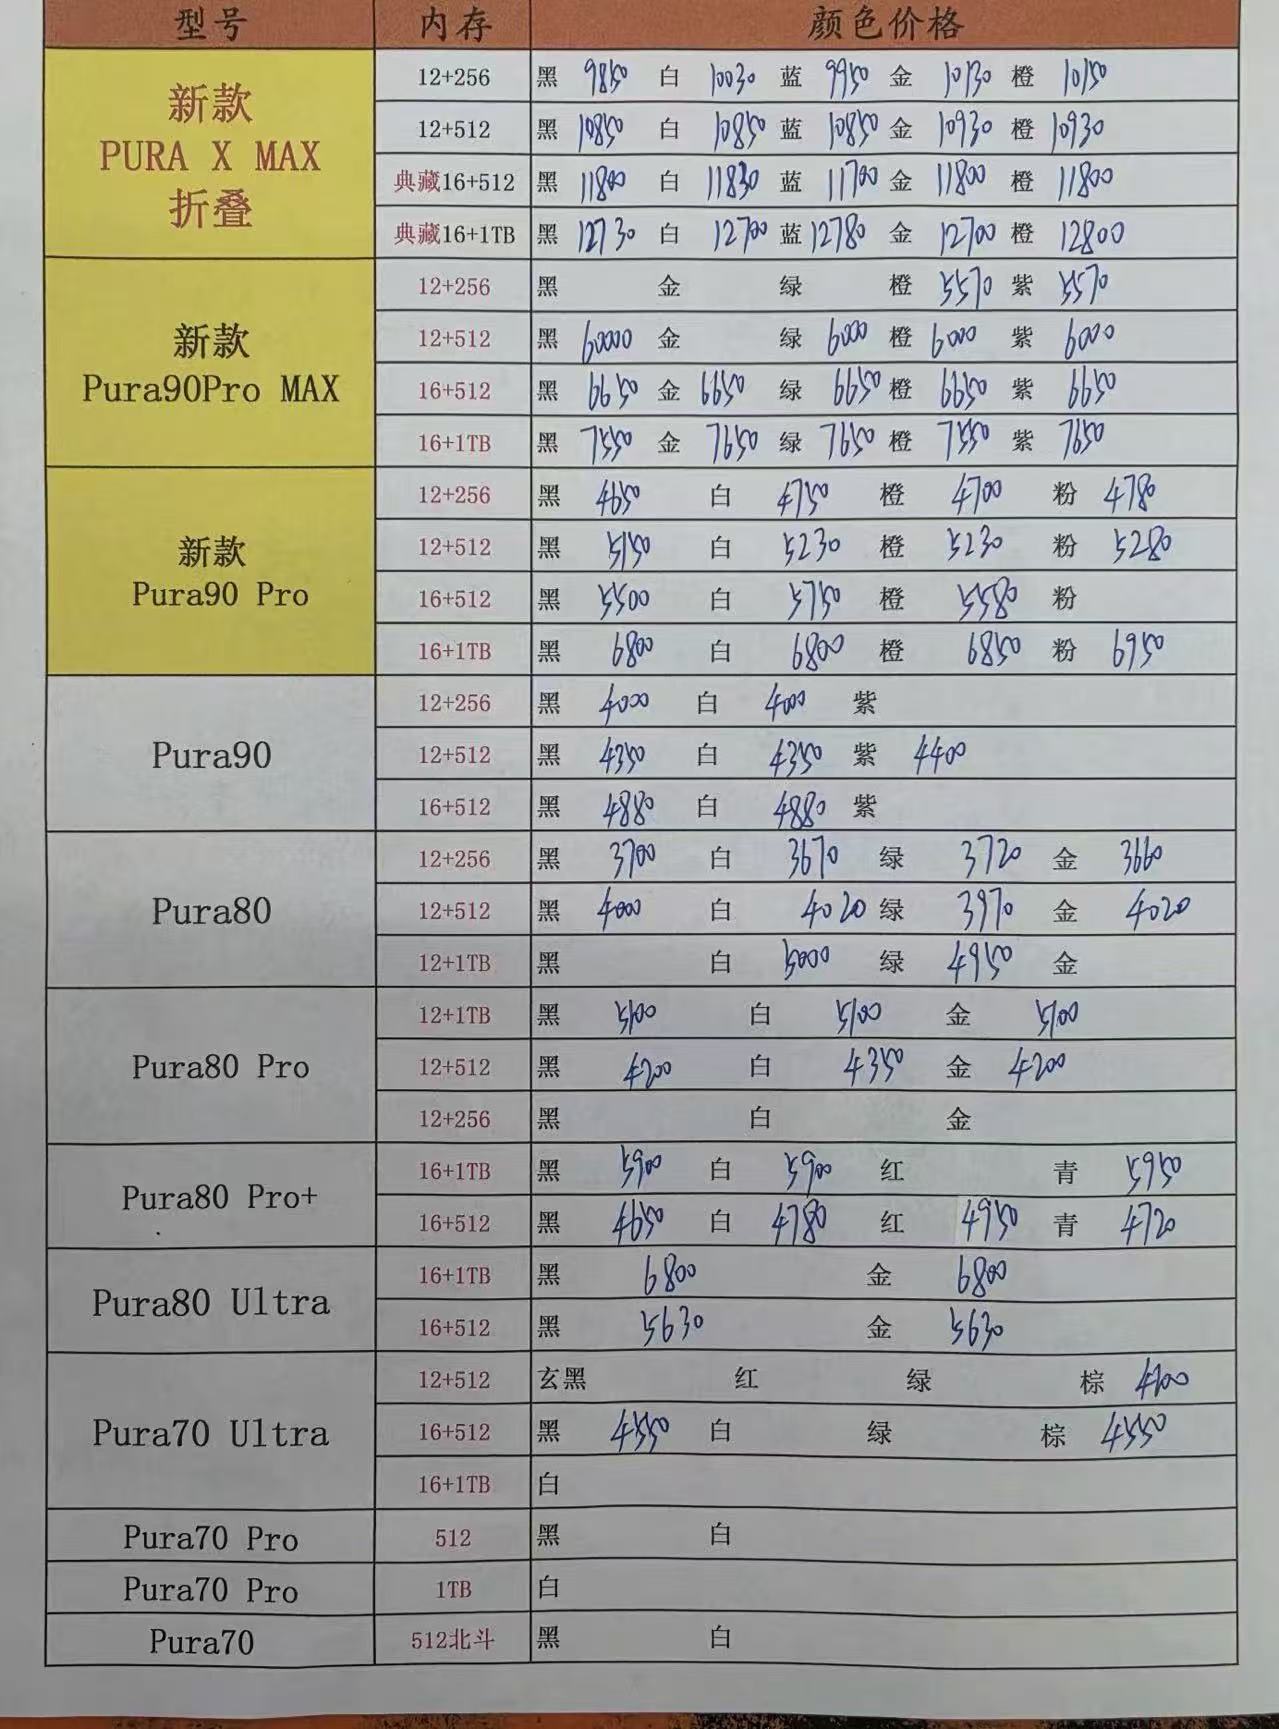 型号 内存 颜色价格
新款
PURA X MAX
折叠
12+256 黑 9850 白 10030 蓝 9950 金 10130 橙 10150
12+512 黑 10850 白 10850 蓝 10850 金 10930 橙 10930
典藏16+512 黑 11800 白 11830 蓝 11700 金 11800 橙 11800
典藏16+1TB 黑 12730 白 12700 蓝 12780 金 12700 橙 12800
新款
Pura90Pro MAX
12+256 黑 金 绿 橙 5570 紫 5570
12+512 黑 60000 金 绿 6000 橙 6000 紫 6000
16+512 黑 6650 金 6650 绿 6650 橙 6650 紫 6650
16+1TB 黑 7550 金 7650 绿 7650 橙 7550 紫 7650
新款
Pura90 Pro
12+256 黑 4650 白 4750 橙 4700 粉 4780
12+512 黑 5150 白 5230 橙 5230 粉 5280
16+512 黑 5500 白 5750 橙 5580 粉
16+1TB 黑 6800 白 6800 橙 6850 粉 6950
Pura90
12+256 黑 4000 白 4000 紫
12+512 黑 4350 白 4350 紫 4400
16+512 黑 4880 白 4880 紫
Pura80
12+256 黑 3700 白 3670 绿 3720 金 3660
12+512 黑 4000 白 4020 绿 3970 金 4020
12+1TB 黑 白 5000 绿 4950 金
Pura80 Pro
12+1TB 黑 5100 白 5100 金 5100
12+512 黑 4200 白 4350 金 4200
12+256 黑 白 金
Pura80 Pro+
16+1TB 黑 5900 白 5900 红 青 5950
16+512 黑 4650 白 4780 红 4950 青 4720
Pura80 Ultra
16+1TB 黑 6800 金 6800
16+512 黑 5630 金 5630
Pura70 Ultra
12+512 玄黑 红 绿 棕 4200
16+512 黑 4550 白 绿 棕 4550
16+1TB 白
Pura70 Pro 512 黑 白
Pura70 Pro 1TB 白
Pura70 512北斗 黑 白